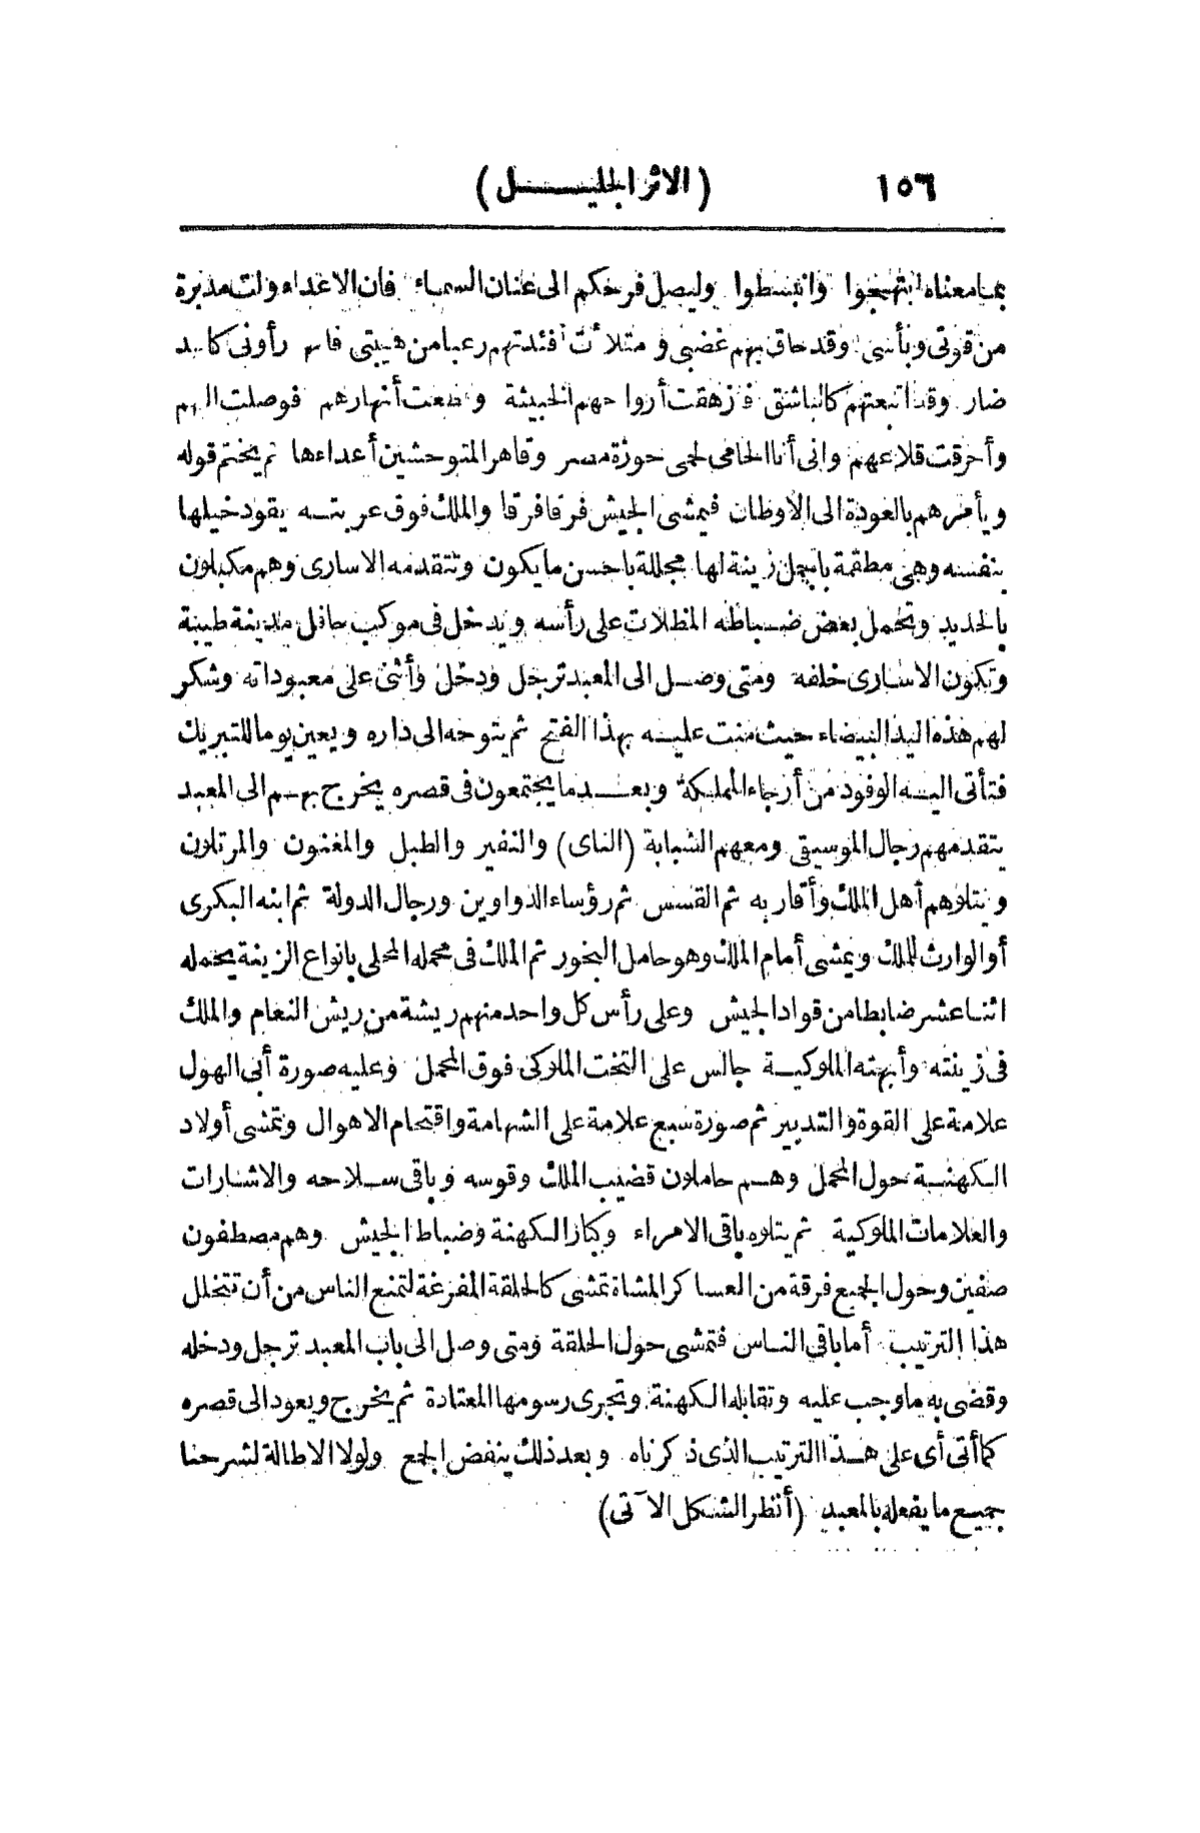 ١٥٦
(الاثر الجليـــــل)
بما معناه ابتهجوا وانبسطوا وليصل فرحكم الى عنان السماء فان الاعداء ولت مدبرة
من قوتى وبأسى وقد حاق بهم غضبى و متلأت أفئدتهم رعبا من هيبتى رأونى كأسد
ضار وقد اتبعتهم كالباشق فزهقت أرواحهم الخبيثة و أنهارهم فوصلت اليهم
وأحرقت قلاعهم وانى أنا الحامى لحمى حوزة مصر وقاهر المتوحشين أعداءها ثم يختم قوله
ويأمرهم بالعودة الى الاوطان فيمشى الجيش فرقا فرقا والملك فوق عربته يقود خيلها
بنفسه وهى مطقمة باجمل زينة لها مجللة باحسن ما يكون وتتقدمه الاسارى وهم مكبلون
بالحديد ويحمل بعض ضباطه المظلات على رأسه ويدخل فى موكب حافل مدينة طيبة
وتكون الاسارى خلفه ومتى وصل الى المعبد ترجل ودخل وأثنى على معبوداته وشكر
لهم هذه اليد البيضاء حيث منت عليه بهذا الفتح ثم يتوجه الى داره ويعين يوما للتبريك
فتأتى اليه الوفود من أرجاء المملكة وبعد ما يجتمعون فى قصره يخرج بهم الى المعبد
يتقدمهم رجال الموسيقى ومعهم الشبابة (الناى) والنفير والطبل والمغنون والمرتلون
ويتلوهم أهل الملك وأقاربه ثم القسس ثم رؤساء الدواوين ورجال الدولة ثم ابنه البكرى
أو الوارث للملك ويمشى أمام الملك وهو حامل البخور ثم الملك فى محمله المحلى بانواع الزينة يحمله
اثنا عشر ضابطا من قواد الجيش وعلى رأس كل واحد منهم ريشة من ريش النعام والملك
فى زينته وأبهته الملوكية جالس على التخت الملوكى فوق المحمل وعليه صورة أبى الهول
علامة على القوة والتدبير ثم صورة سبع علامة على الشهامة واقتحام الاهوال وتمشى أولاد
الكهنة حول المحمل وهم حاملون قضيب الملك وقوسه وباقى سلاحه والاشارات
والعلامات الملوكية ثم يتلوه باقى الامراء وكبار الكهنة وضباط الجيش وهم مصطفون
صفين وحول الجميع فرقة من العساكر المشاة تمشى كالحلقة المفرغة لتمنع الناس من أن تتخلل
هذا الترتيب أما باقى الناس فتمشى حول الحلقة ومتى وصل الى باب المعبد ترجل ودخله
وقضى به ما وجب عليه وتقابله الكهنة وتجرى رسومها المعتادة ثم يخرج ويعود الى قصره
كما أتى أى على هذا الترتيب الذى ذكرناه وبعد ذلك ينفض الجمع ولولا الاطالة لشرحنا
جميع ما يفعله بالمعبد (أنظر الشكل الآتى)